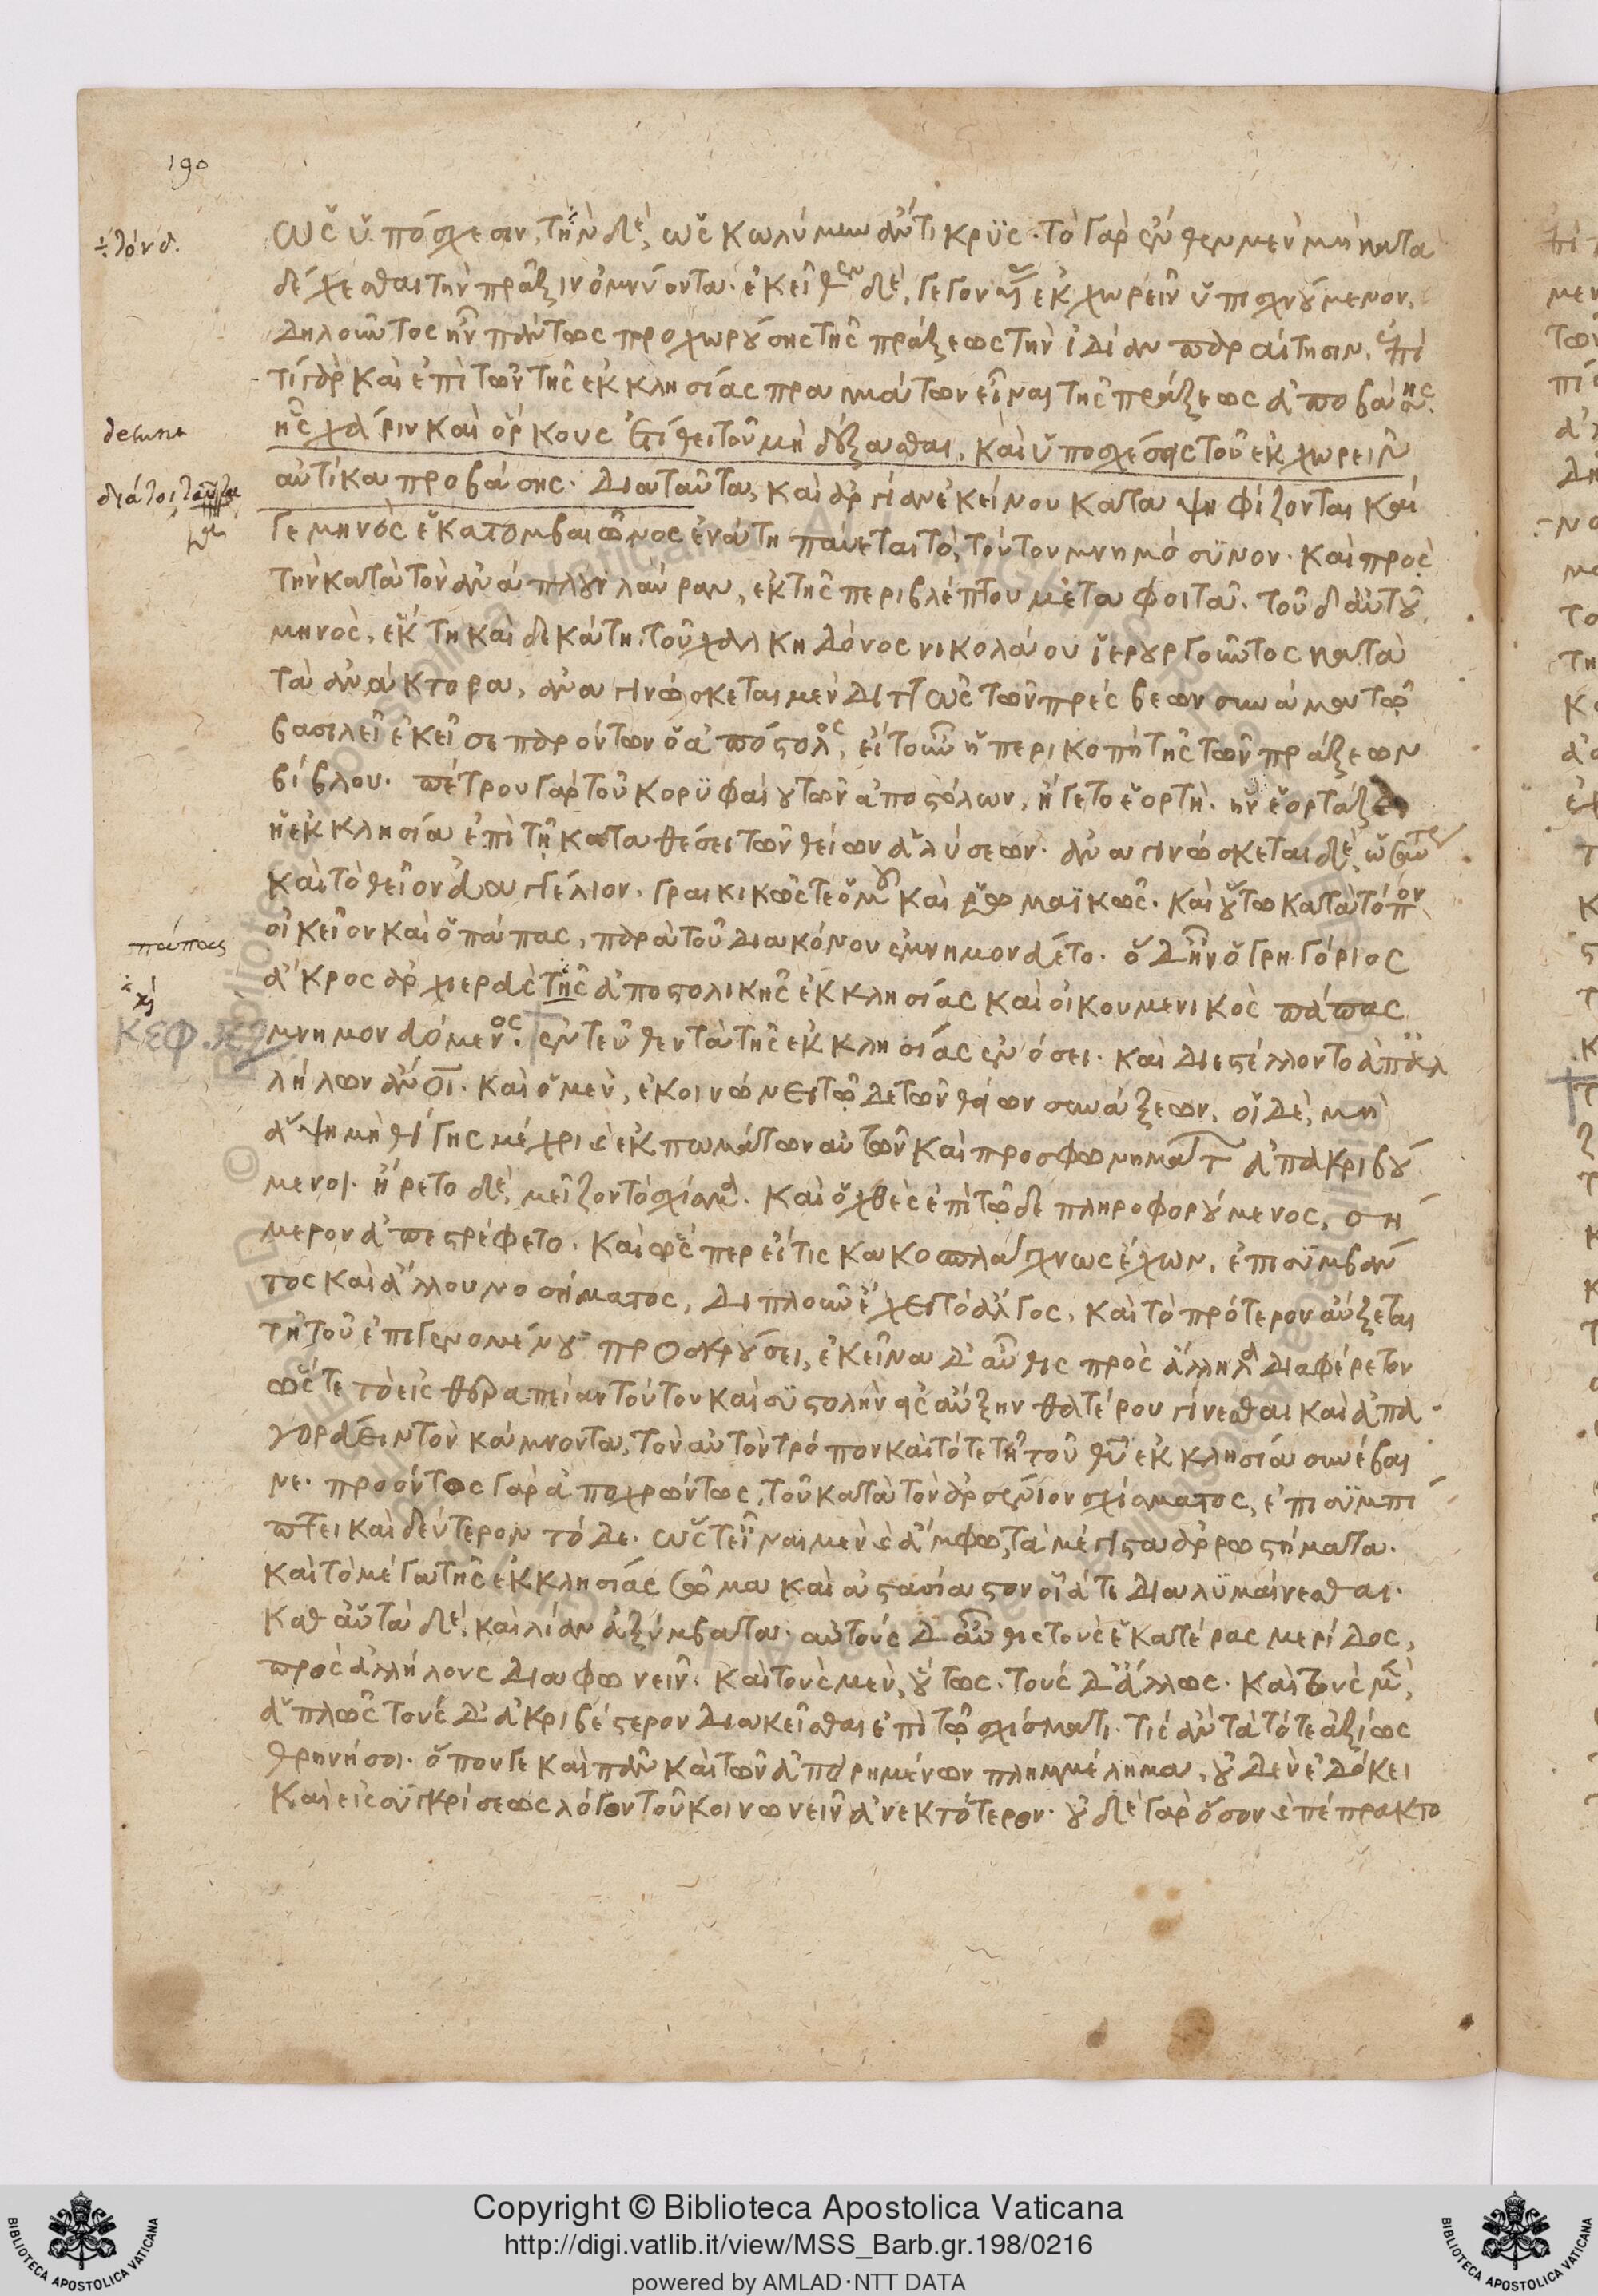 190
ὡς ὑπόσχεσιν, τὴν δὲ, ὡς κωλύμην ἄντικρυς· τὸ γὰρ ἔνθεν μὲν μὴ κατα
δέχεσθαι τὴν πρᾶξιν ὀμνύοντα· ἐκεῖθεν δὲ, γεγονυίας ἐκχωρεῖν ὑπισχνούμενον,
δηλοῦντος ἦν πάντως προχωρούσης τῆς πράξεως τὴν ἰδίαν παραίτησιν, ἐπὶ
τί γὰρ καὶ ἐπὶ τῶν τῆς ἐκκλησίας πραγμάτων εἶναι τῆς πράξεως ἀποβάσης·
ἧς χάριν καὶ ὅρκους ἐτίθει τοῦ μὴ δέξασθαι, καὶ ὑποσχέσεις τοῦ ἐκχωρεῖν
αὐτίκα προβάσης· διὰ ταῦτα, καὶ ἀργίαν ἐκείνου καταψηφίζονται καί
γε μηνὸς ἑκατομβαιῶνος ἐνάτῃ παύεται τὸ, τούτου μνημόσυνον· καὶ πρὸς
τὴν κατὰ τὸν ἀνάπλουν λαύραν, ἐκ τῆς περιβλέπτου μεταφοιτᾷ. τοῦ δ' αὐτοῦ
μηνὸς, ἕκτῃ καὶ δεκάτῃ, τοῦ χαλκηδόνος νικολάου ἱερουργοῦντος κατὰ
τὰ ἀνάκτορα, ἀναγινώσκεται μὲν διττῶς τῶν πρέσβεων συνάμα τῷ
βασιλεῖ ἐκεῖσε παρόντων ὁ ἀπόστολος, εἴτουν ἡ περικοπὴ τῆς τῶν πράξεων
βίβλου· πέτρου γὰρ τοῦ κορυφαίου τῶν ἀποστόλων, ἤγετο ἑορτή· ἣν ἑορτάζει
ἡ ἐκκλησία ἐπὶ τῇ καταθέσει τῶν θείων ἁλύσεων· ἀναγινώσκεται δὲ, ὡσαύτως
καὶ τὸ θεῖον εὐαγγέλιον, γραικικῶς τε ὁμοῦ καὶ ῥωμαϊκῶς· καὶ οὕτω κατὰ τόπον
οἰκεῖον καὶ ὁ πάπας, παρὰ τοῦ διακόνου ἐμνημονεύετο· ὁ δῆν ὁ γρηγόριος
ἄκρος ἀρχιερεὺς τῆς ἀποστολικῆς ἐκκλησίας καὶ οἰκουμενικὸς πάπας
μνημονευόμενος· ἐντεῦθεν τὰ τῆς ἐκκλησίας ἐνόσει· καὶ διεστέλλοντο ἀπ' ἀλ
λήλων ἄνοι· καὶ ὁ μὲν, ἐκοινώνει τῷδε τῶν θείων συνάξεων, οἱ δὲ, μὴ
ἅψῃ μὴ θίγῃς μέχρι καὶ ἐκπωμάτων αὐτῶν καὶ προσφωνημάτων ἀπακριβού
μενοι· ἤρετο δὲ, μεῖζον τὸ σχίσμα· καὶ ὁ χθὲς ἐπὶ τῷδε πληροφορούμενος, σή
μερον ἀπεστρέφετο· καὶ ὥσπερ εἴ τις κακοσπλάγχνως ἔχων, ἐπισυμβάν
τος καὶ ἄλλου νοσήματος, διπλοῦν ἔχει τὸ ἄλγος, καὶ τὸ πρότερον αὔξεται
τῇ τοῦ ἐπιγενομένου προσκρούσει, ἐκεῖνα δ' αὖθις πρὸς ἄλληλα διαφέρετον
ὥστε τὸ εἰς θεραπείαν τούτου καὶ συστολὴν εἰς αὔξην θατέρου γίνεσθαι καὶ ἀπα
γορεύειν τὸν κάμνοντα, τὸν αὐτὸν τρόπον καὶ τότε τῇ τοῦ θυ ἐκκλησίᾳ συνέβαι
νε· προσόντος γὰρ ἀποχρώντως, τοῦ κατὰ τὸν ἀρσένιον σχίσματος, ἐπισυμπί
πτει καὶ δεύτερον τόδε· ὥστ' εἶναι μὲν καὶ ἄμφω, τὰ μέγιστα ἀρρωστήματα·
καὶ τὸ μέγα τῆς ἐκκλησίας σῶμα καὶ ἀστασίαστον οἷά τε διαλυμαίνεσθαι·
καθ' αὑτὰ δὲ, καὶ λίαν ἀξύμβατα· αὐτοὺς δ' αὖθις τοὺς ἑκατέρας μερίδος,
πρὸς ἀλλήλους διαφωνεῖν· καὶ τοὺς μὲν, οὕτως· τοὺς δ' ἄλλως· καὶ τοὺς μὲν,
ἁπλῶς τοὺς δ' ἀκριβέστερον διακεῖσθαι ἐπὶ τῷ σχίσματι· τίς ἂν τὰ τότε ἀξίως
θρηνήσοι· ὅπου γε καὶ πᾶν καὶ τῶν ἀπειρημένων πλημμέλημα, οὐδὲν ἐδόκει
καὶ εἰς συγκρίσεως λόγον τοῦ κοινωνεῖν ἀνεκτότερον· οὐδὲ γὰρ ὅσον ἐπέπρακτο
desunt
διά τοι ταῦτα
πάπας
κη
ΚΕΦ. κη
Copyright © Biblioteca Apostolica Vaticana
http://digi.vatlib.it/view/MSS_Barb.gr.198/0216
powered by AMLAD·NTT DATA
BIBLIOTECA APOSTOLICA VATICANA
BIBLIOTECA APOSTOLICA VATICANA